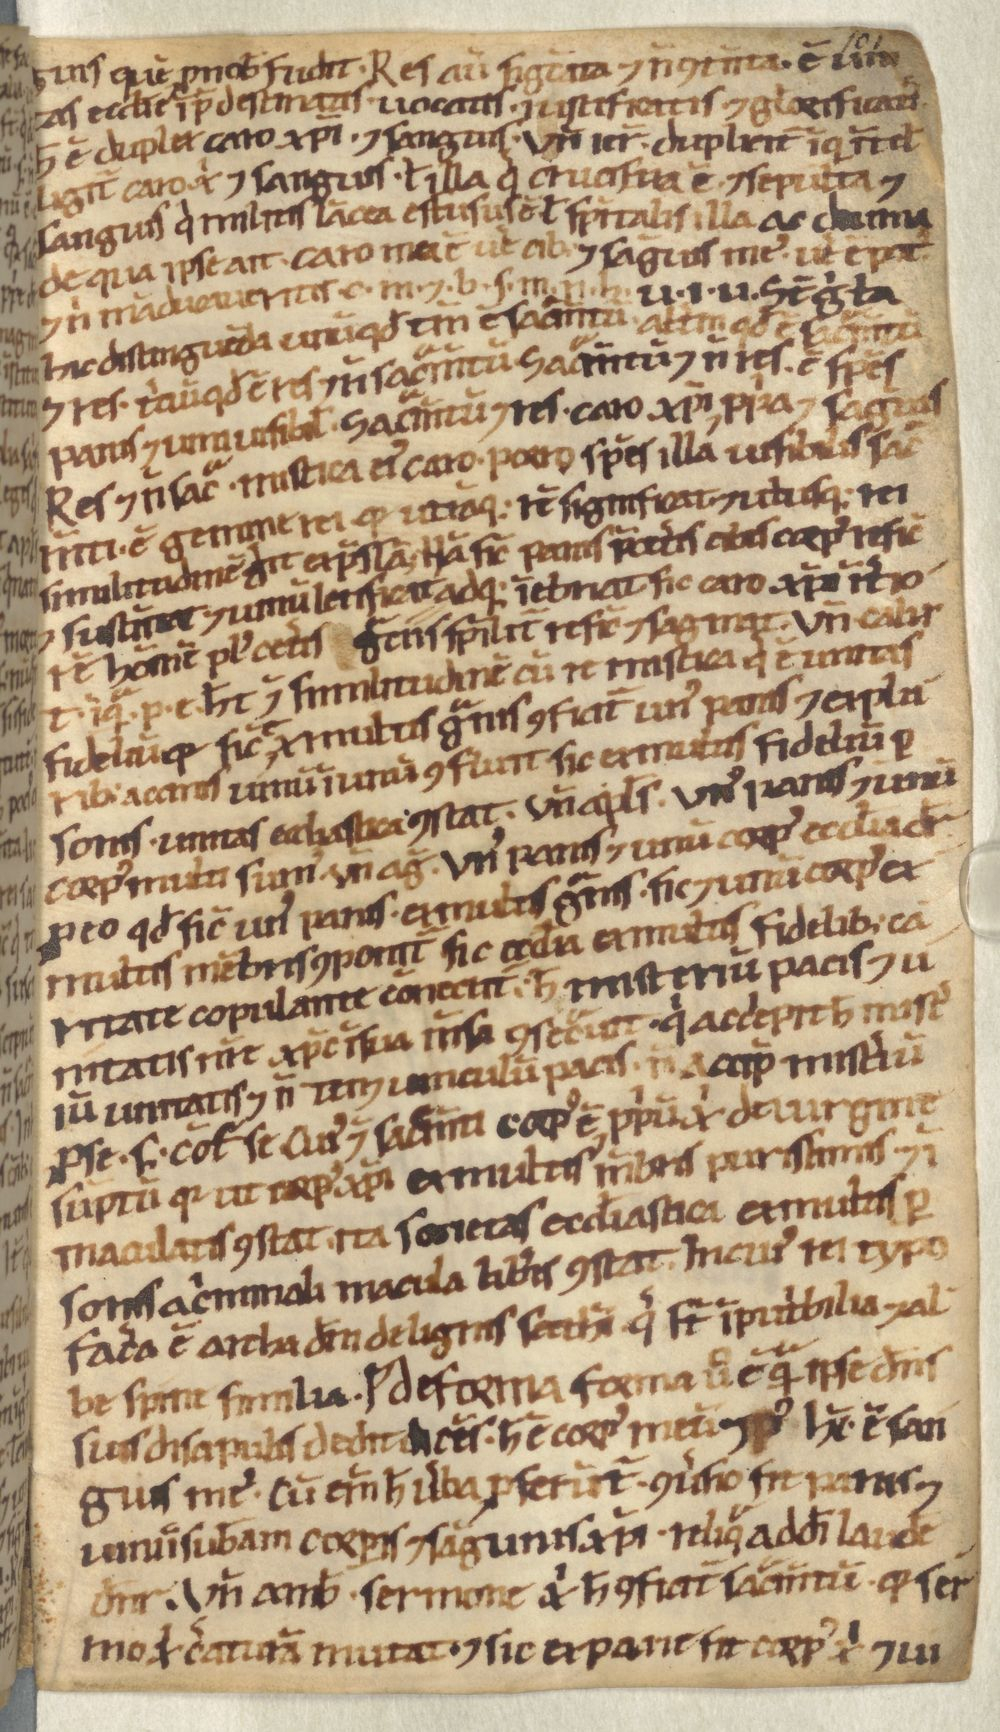 guis quē ꝓ nob fudit. Res aū signata ⁊ n̄ ꝯtenta. ē uni
tas eccl̄ie ī p̄destinatis. uocatis. iustificatis. ⁊ glorificatis.
h̄ ē duplex caro xp̄i. ⁊ sanguis. Vn̄ ier. duplicit̄ īq̇ intel
ligit̄ caro x̄ ⁊ sanguis. ł illa q̄ crucifixa ē. ⁊ sepulta ⁊
sanguis q̇ militis lācea effusus ē ł spiritalis illa ac diuina
de qua ipse ait. caro mea ē uē cib. ⁊ sāguis me' uē ē pot.
⁊ n̄ māducaueritis. c. m. ⁊. b. s. m. n. h. u. i. u. S̄t ḡ t̄a
hic distinguēda unū qd̄ tm̄ ē sac̄m̄tū. alt̄m qd̄ ē sac̄m̄tū
⁊ res. t̄ciū qd̄ ē res ⁊ n̄ sac̄m̄tū. Sac̄m̄tū ⁊ n̄ res. ē spēs
panis ⁊ uini uisibil. Sac̄m̄tū ⁊ res. caro xp̄i ꝓp̄a ⁊ sāguis
Res ⁊ n̄ sac̄. mistica ei' caro. porro spēs illa uisibilis sac̄
m̄ti. ē gemine rei q̇ utrāq; rē significat. ⁊ utriusq; rei
similitudinē gerit exp̄ssā. Nā sic panis p̄ cetis cibis corp' reficit
⁊ sustentat. ⁊ uinū letificat adq; īebriat sic caro xp̄i īt̄io
rē hoīē pl' cetis gr̄iis spiritlit̄ reficit ⁊ saginat. Vn̄ calix
t. īq̇. p. e. h̄t ⁊ similitudinē cū re mistica q̄ ē unitas
fideliū q̇ sic ex multis granis ꝯficit̄ un' panis ⁊ ex plu
rib; acinis uinū ī unū ꝯfluit. sic ex multis fideliū ꝑ
sonis. unitas eccl̄iastica ꝯstat. Vn̄ apl̄s. Vn' panis ⁊ unū
corp' multi sum'. vn̄ ag. Vn' panis ⁊ unū corp' eccl̄ia dr̄
p eo qd̄ sic un' panis. ex multis granis. sic ⁊ unū corp' ex
multis mēbris ꝯponit̄ sic eccl̄ia ex multis fidelib; ca
ritate copulante cōnectit̄. h̄ misteriū pacis ⁊ u
nitatis nr̄e xp̄c ī sua mēsa ꝯsecrauit. q̇ accepit h̄ mist̄
iū unitatis ⁊ n̄ tenet uinculū pacis. n̄ accip̄ mist̄iū
p se. s; cōt̄ se. Cui' ⁊ sac̄m̄ti corp' ē ꝓp̄iū x̄ de uirgine
sūptū q̇ ut corp' xp̄i ex multis mēbris purissimis. ⁊ ī
maculatis ꝯstat. ita societas eccl̄iastica ex multis ꝑ
sonis a c̄minali macula lib̄is ꝯstat. In cui' rei typo
fac̄ta ē archa dn̄i de lignis sethī. q̄ s̄t īputribilia ⁊ al
be spine similia. ¶ De forma forma ū ē q̄ ipse dn̄s
suis discipulis dedit dicēs. h̄ ē corp' meū ⁊ p' hic ē san
guis me'. Cū em̄ h̄ ūba pferūt̄. ꝯūsio fit panis ⁊
uini ī subam corporis ⁊ sāguinis xp̄i. reliq̄ ad dī laudē
dr̄r. Vn̄ amb. sermone x̄ h̄ ꝯficit̄ sac̄m̄tū. q̇ ser
mo x̄ c̄aturā mutat. ⁊ sic ex pane fit corp' x̄ ⁊ ui